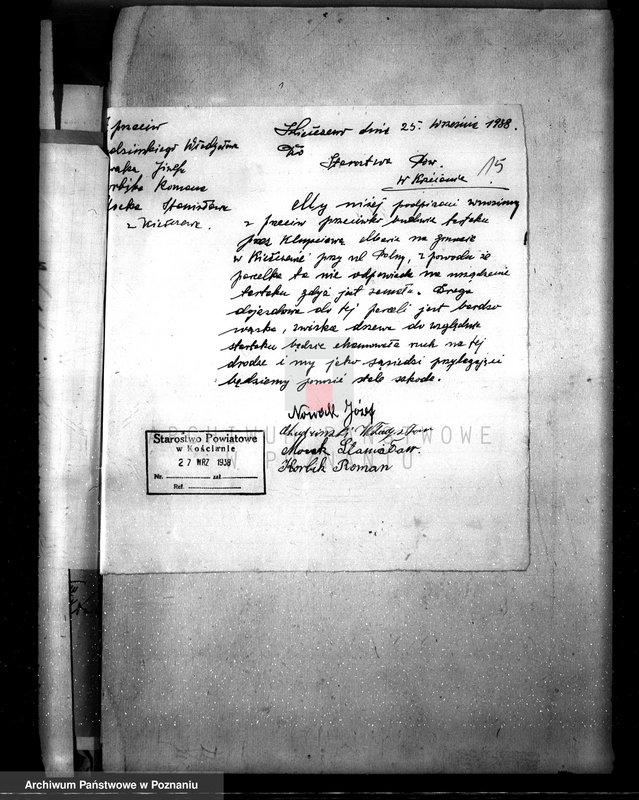 przeciw
Władysława
Józefa
Romana
Stanisława
z Kiełczewa.
Kiełczewo dnia 25. Września 1938.
Do
Starostwa Pow.
w Kościanie
15
My niżej podpisani wnosimy
przeciwko budowie tartaku
przez
na gruncie
w Kiełczewie przy ul Polny, z powodu że
parcelka ta nie odpowiada na urządzenie
tartaku gdyż jest zamała. Droga
dojazdowa do tej parceli jest bardzo
wąska, zwózka drzewa do
tartaku będzie ruch na tej
drodze i my jako sąsiedzi przylegający
będziemy ponosić stale szkode.
Nowak Józef
Władysław
Stanisław.
Korbik Roman
Starostwo Powiatowe
w Kościanie
27 WRZ 1938
Nr. zał.
Ref.
ARCHIWUM PAŃSTWOWE
W POZNANIU
Archiwum Państwowe w Poznaniu